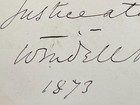 Justice at
Windell
1873